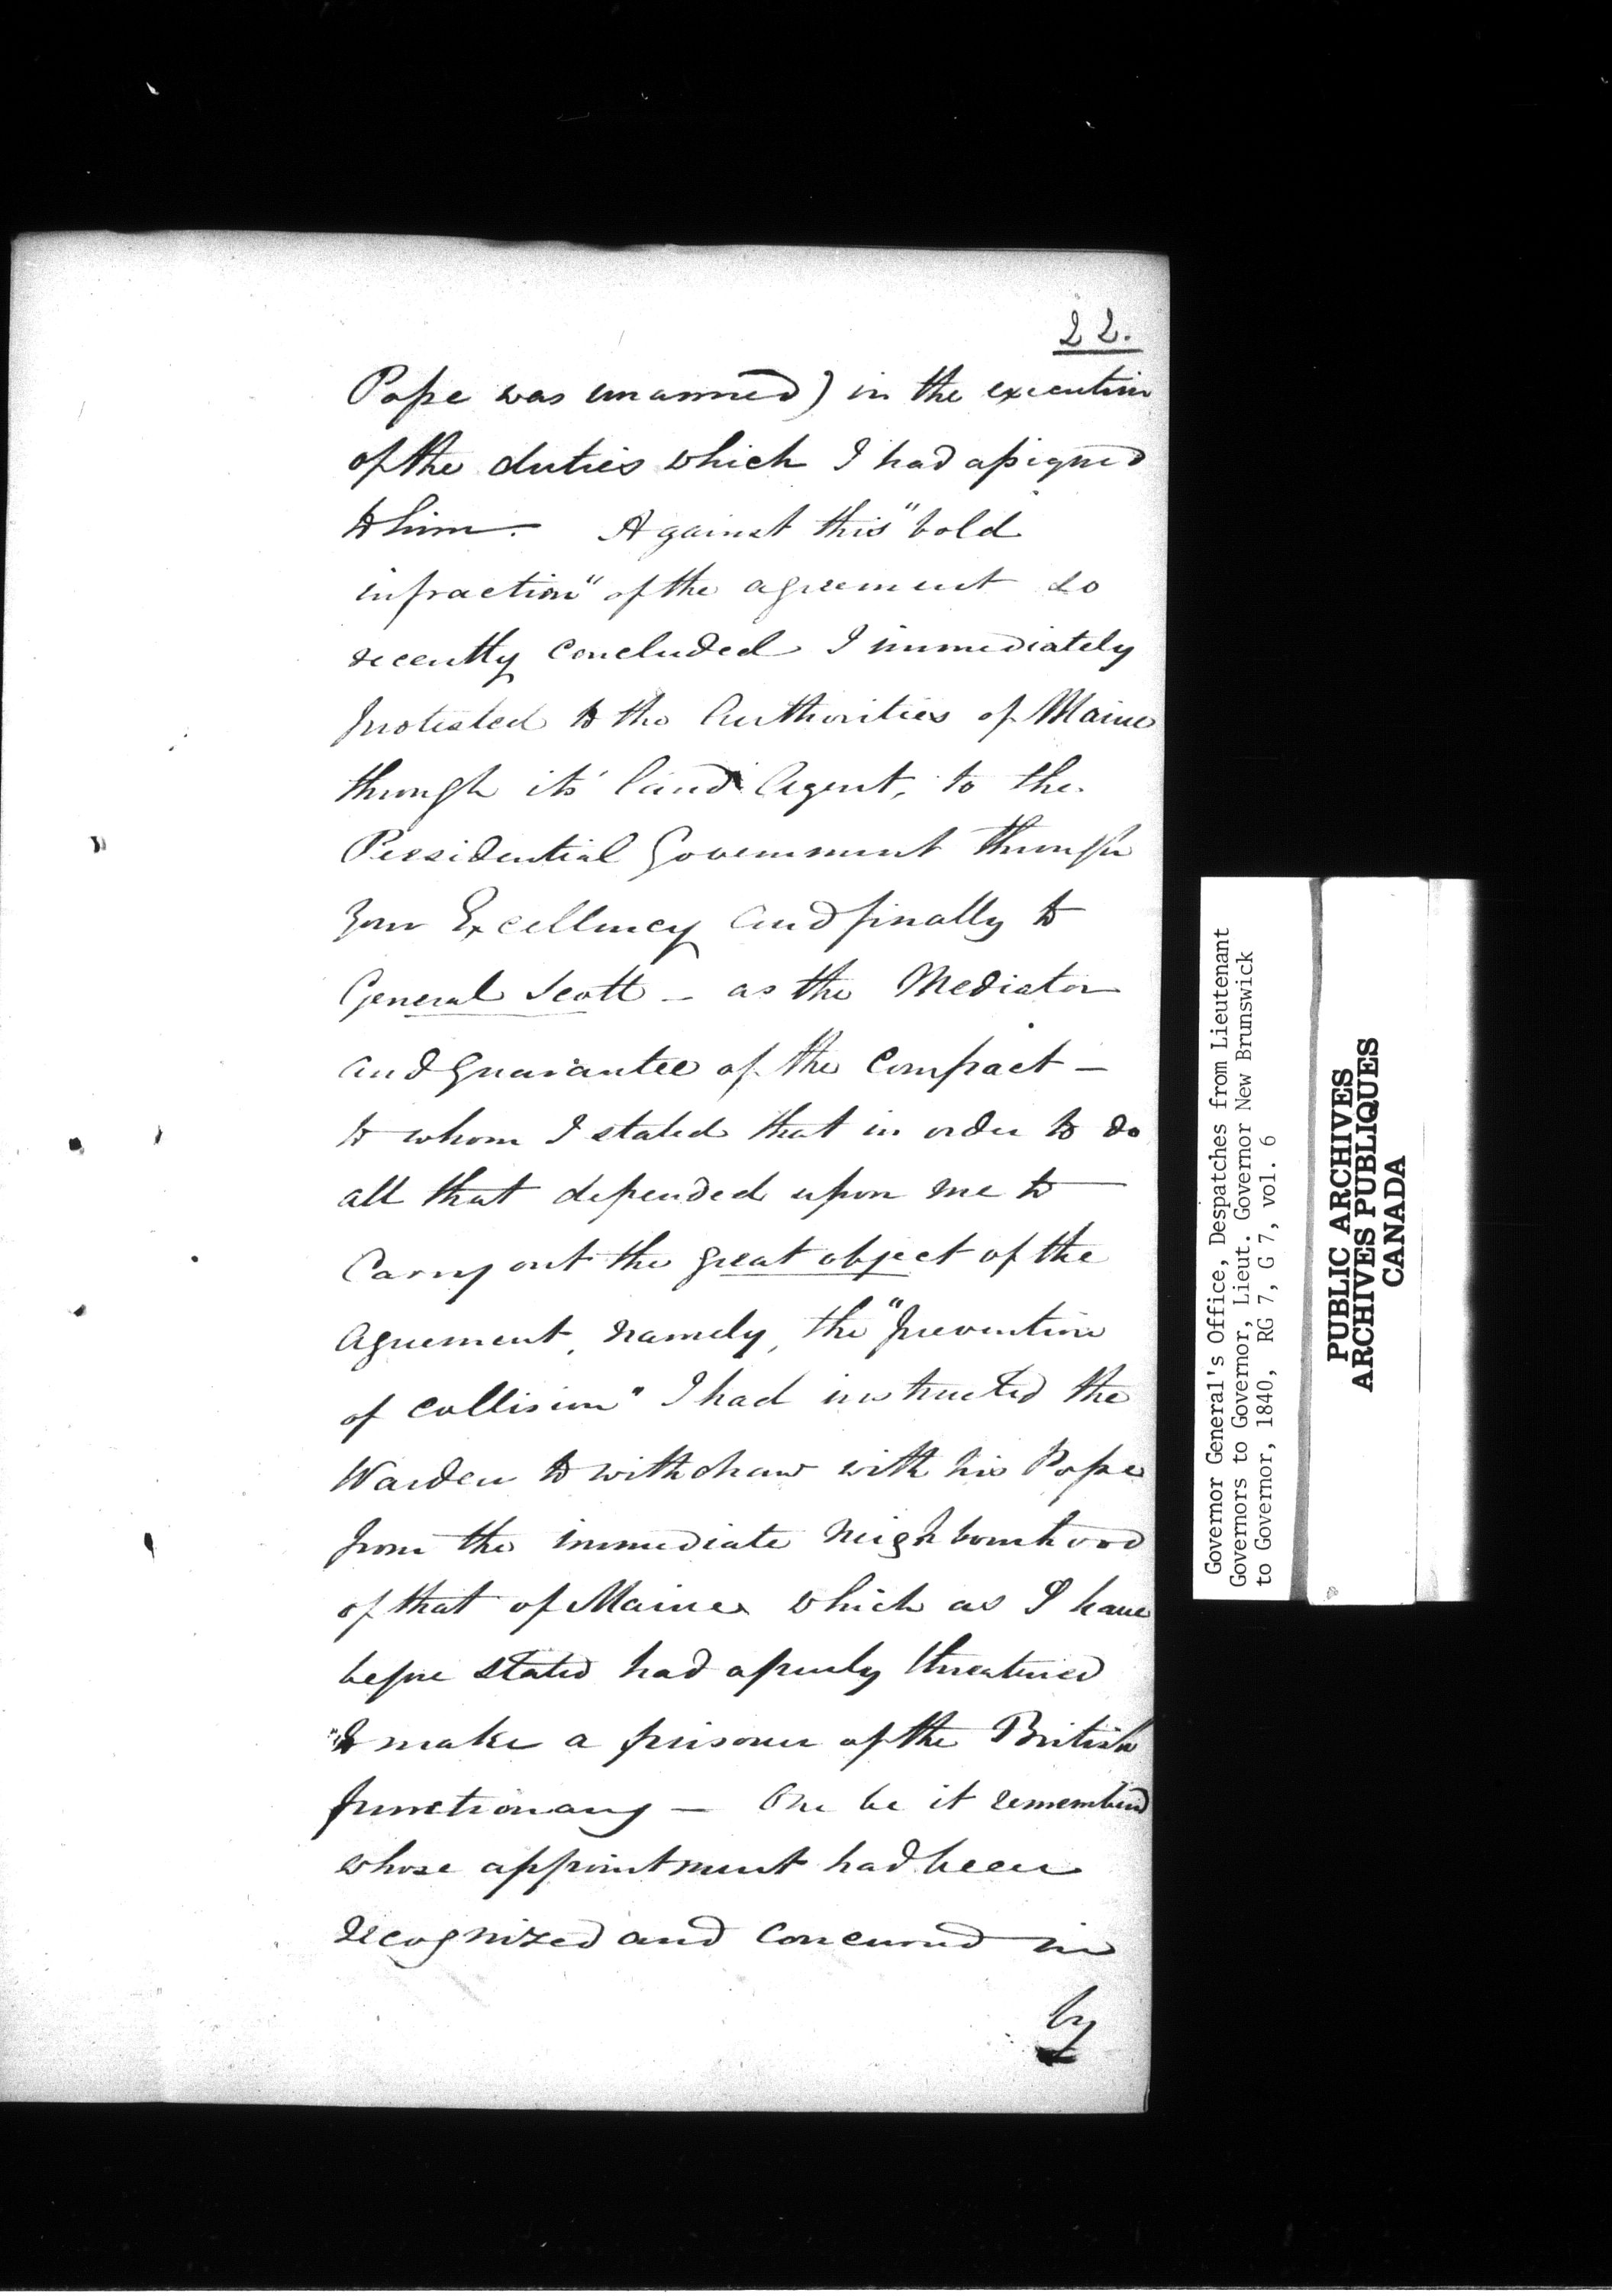 22.
Posse was unarmed) in the execution
of the duties which I had assigned
to him. Against this "bold
infraction" of the agreement so
recently concluded I immediately
protested to the Authorities of Maine
through its' Land Agent, to the
Presidential Government through
Your Excellency and finally to
General Scott _ as the Mediator
and guarantee of the compact _
to whom I stated that in order to do
all that depended upon me to
Carry out the great object of the
Agreement, namely, the "prevention
of collision" I had instructed the
Warden to withdraw with his Posse
from the immediate neighbourhood
of that of Maine which as I have
before stated had openly threatened
"to make a prisoner of the British
functionary _ One be it remembered
whose appointment had been
recognized and concurred in
by
Governor General's Office, Despatches from Lieutenant
Governors to Governor, Lieut. Governor New Brunswick
to Governor, 1840, RG 7, G 7, vol. 6
PUBLIC ARCHIVES
ARCHIVES PUBLIQUES
CANADA